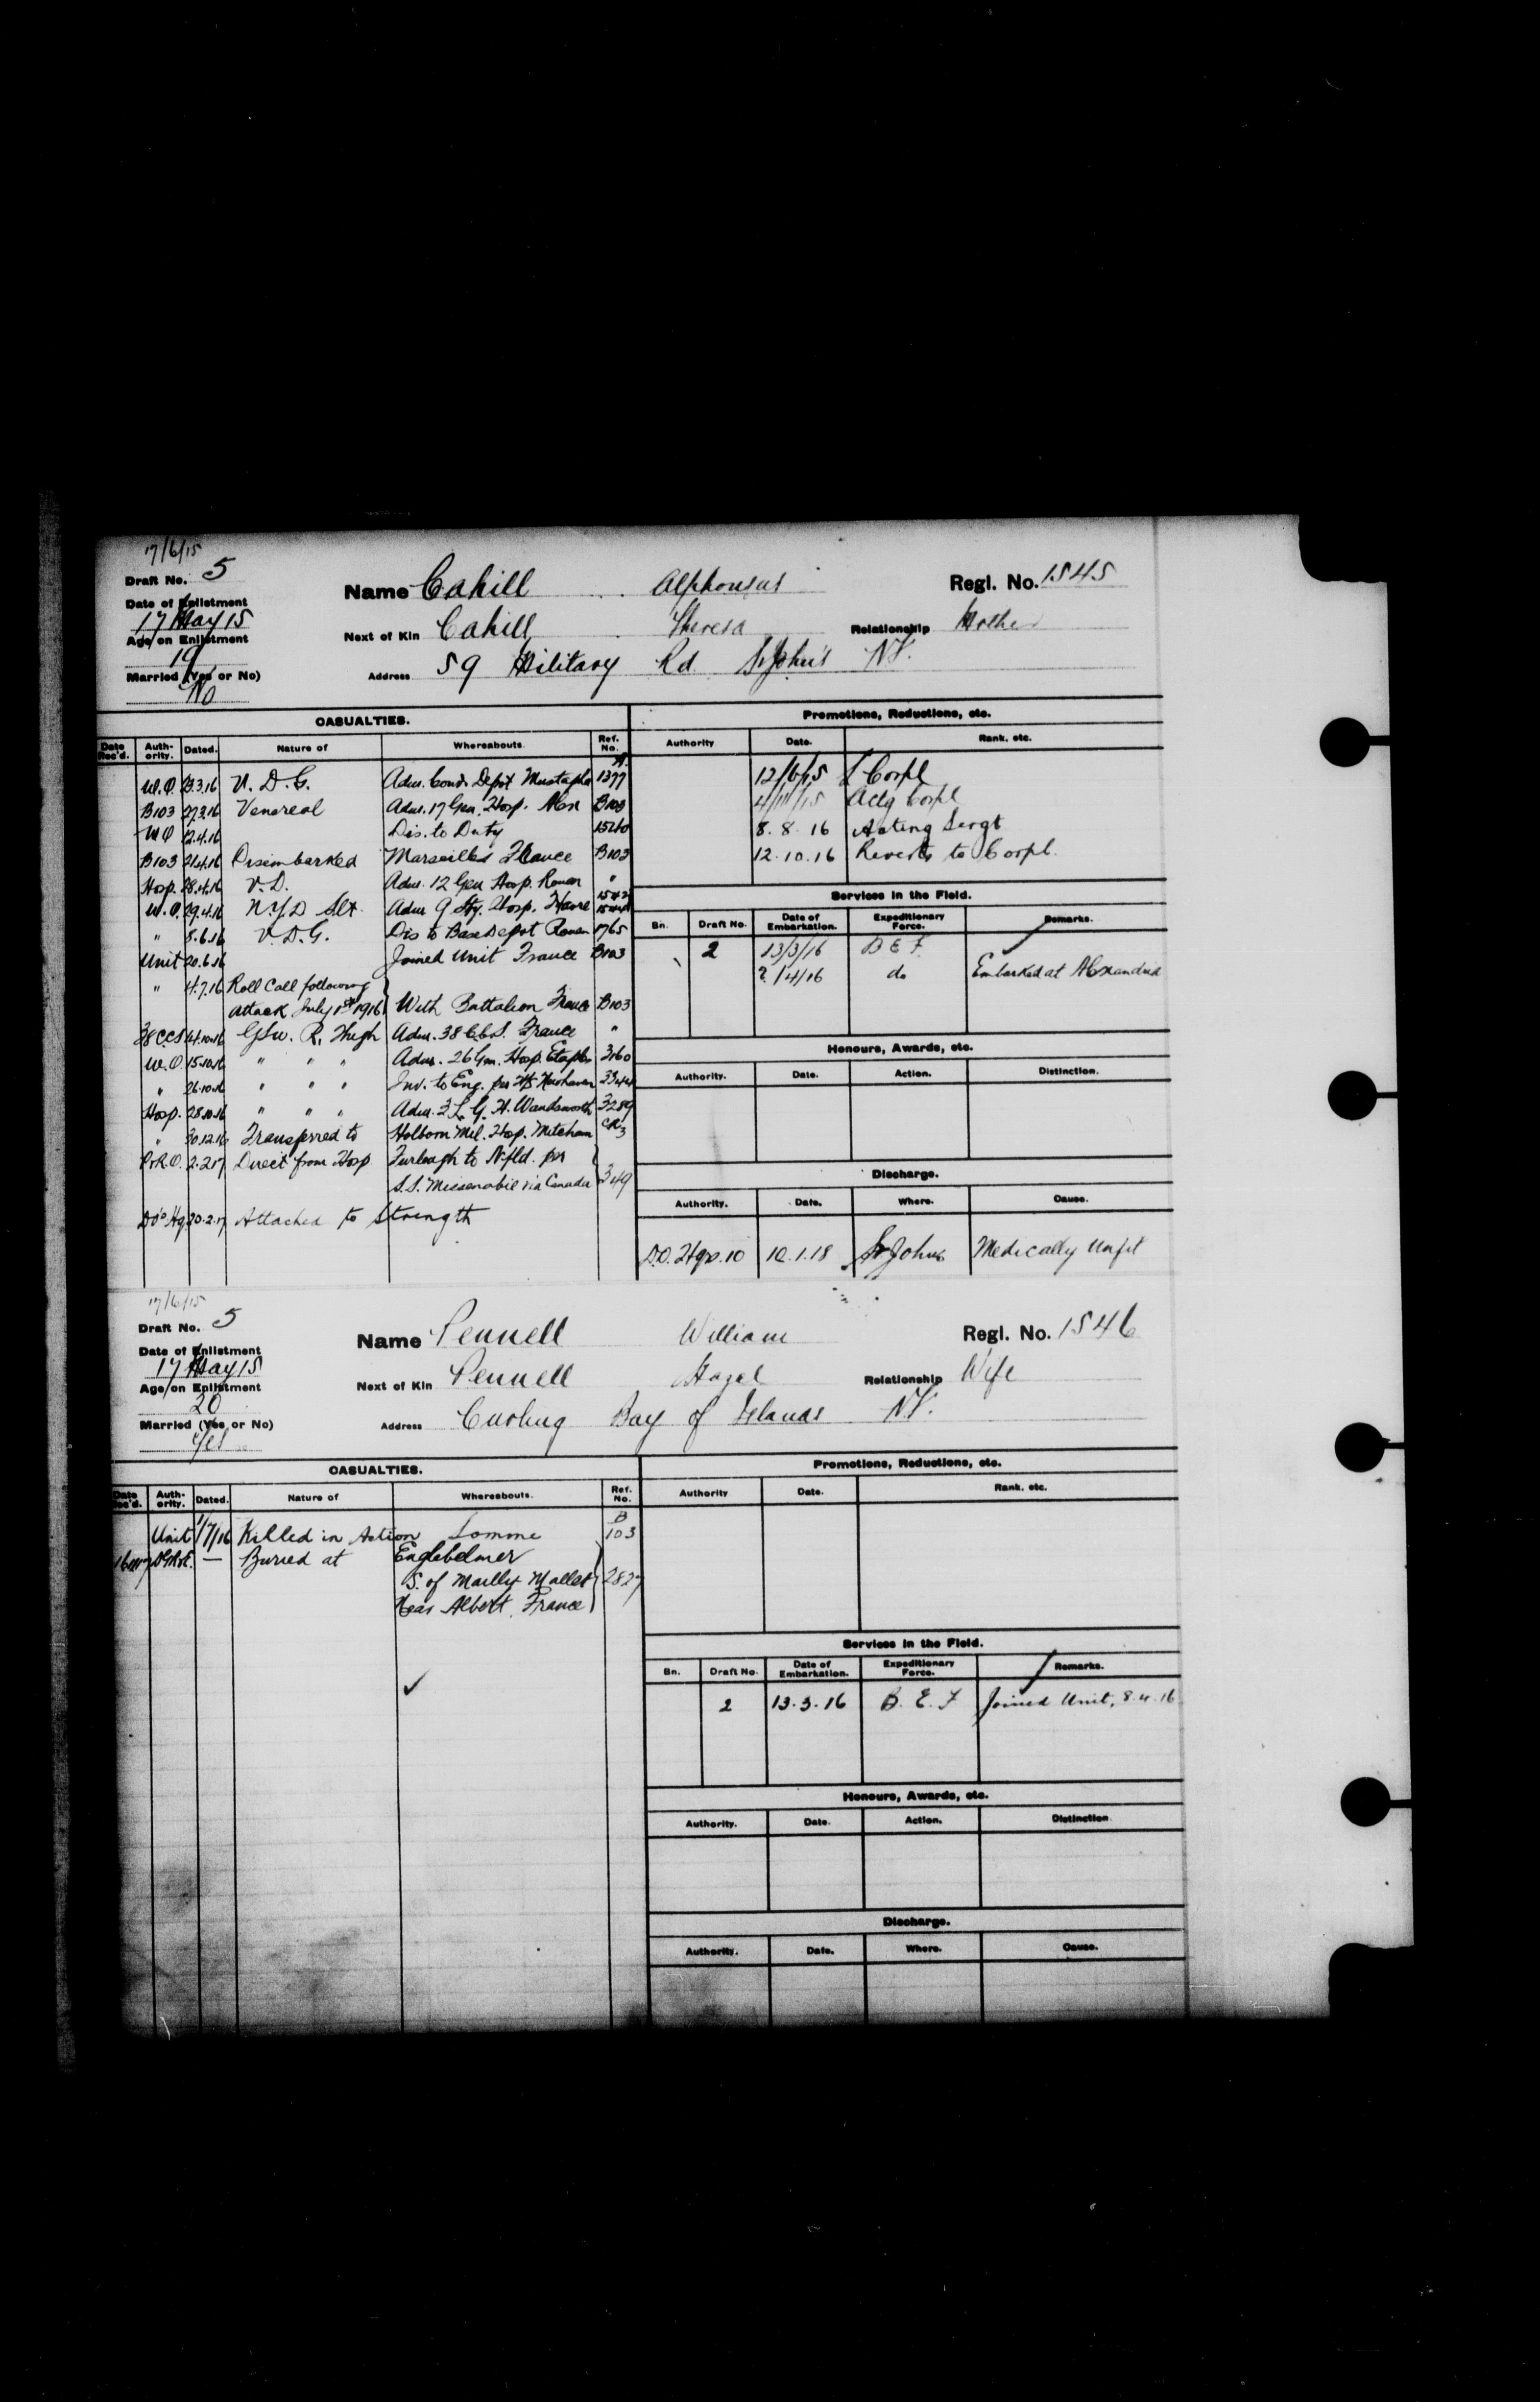 17/6/15
Draft No. 5
Name Cahill Alphonsus Regl. No. 1545
Date of Enlistment
17 May 15
Next of Kin Cahill Theresa Relationship Mother
Age on Enlistment
19
Address 59 Military Rd St John's Nf.
Married (Yes or No)
No
CASUALTIES.
Date Rec'd. Auth-ority. Dated. Nature of Whereabouts. Ref. No.
W.O. 23.3.16 V. D. G. Adm. Cond. Depot Mustapha A. 1377
B103 27.3.16 Venereal Adm. 17 Gen. Hosp. Alex B103
W O 12.4.16 Dis. to Duty 1520
B103 21.4.16 Disembarked Marseilles France B103
Hosp. 28.4.16 V. D. Adm. 12 Gen Hosp. Rouen "
W.O. 29.4.16 N.Y.D Slt. Adm 9 Sty. Hosp. Havre 1542
" 8.6.16 V. D. G. Dis to Base Depot Rouen 1765
Unit 20.6.16 Joined Unit France B103
" 4.7.16 Roll Call following
attack July 1st 1916 With Battalion France B103
38 CCS 14.10.16 GSW. R. Thigh Adm. 38 C.C.S. France "
W.O. 15.10.16 " " " Adm. 26 Gen. Hosp. Etaples 3160
" 26.10.16 " " " Inv. to Eng. per HS Newhaven 3344
Hosp. 28.10.16 " " " Adm. 3 L. G. H. Wandsworth 3289
" 30.12.16 Transferred to Holborn Mil. Hosp. Mitcham CR3
P&R.O. 2.2.17 Direct from Hosp Furlough to Nfld. per
S.S. Missanabie via Canada 349
D.O. Hq. 20.2.17 Attached to Strength
Promotions, Reductions, etc.
Authority Date. Rank, etc.
12/6/15 L Corpl
4/11/15 Actg Corpl
8. 8. 16 Acting Sergt
12.10.16 Reverts to Corpl.
Services in the Field.
Bn. Draft No. Date of Embarkation. Expeditionary Force. Remarks.
2 13/3/16 B E F.
?/4/16 do Embarked at Alexandria
Honours, Awards, etc.
Authority. Date. Action. Distinction.
Discharge.
Authority. Date. Where. Cause.
D.O. Hqrs. 10 12.1.18 St Johns Medically Unfit
17/6/15
Draft No. 5
Name Pennell William Regl. No. 1546
Date of Enlistment
17 May 15
Next of Kin Pennell Hazel Relationship Wife
Age on Enlistment
20
Address Curling Bay of Islands Nf.
Married (Yes or No)
Yes
CASUALTIES.
Date Rec'd. Auth-ority. Dated. Nature of Whereabouts. Ref. No.
Unit 1/7/16 Killed in Action Somme B 103
— Buried at Englebelmer
S. of Mailly Mallet 2827
Near Albert, France
Promotions, Reductions, etc.
Authority Date. Rank, etc.
Services in the Field.
Bn. Draft No. Date of Embarkation. Expeditionary Force. Remarks.
2 13.3.16 B. E. F Joined Unit, 8.4.16
Honours, Awards, etc.
Authority. Date. Action. Distinction
Discharge.
Authority. Date. Where. Cause.